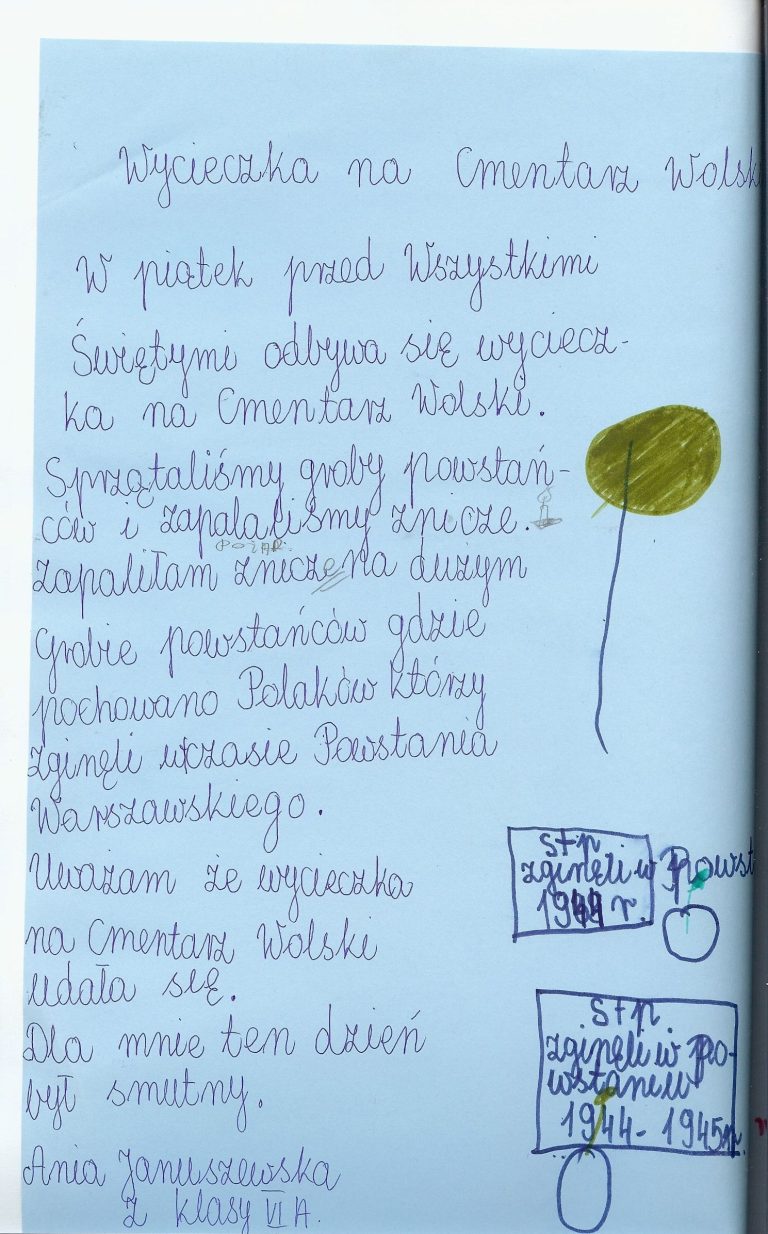 Wycieczka na Cmentarz Wolski
W piątek przed Wszystkimi
Świętymi odbywa się wyciecz-
ka na Cmentarz Wolski.
Sprzątaliśmy groby powstań-
ców i zapalaliśmy znicze.
POŻAR.
Zapaliłam znicze na dużym
Grobie powstańców gdzie
pochowano Polaków którzy
zginęli w czasie Powstania
Warszawskiego.
Uważam że wycieczka
na Cmentarz Wolski
udała się.
Dla mnie ten dzień
był smutny.
Ania Januszewska
z klasy VI A.
ś+p
zginęli w Powst
1944 r.
ś+p.
zginęli w Po-
wstaniu
1944-1945r.